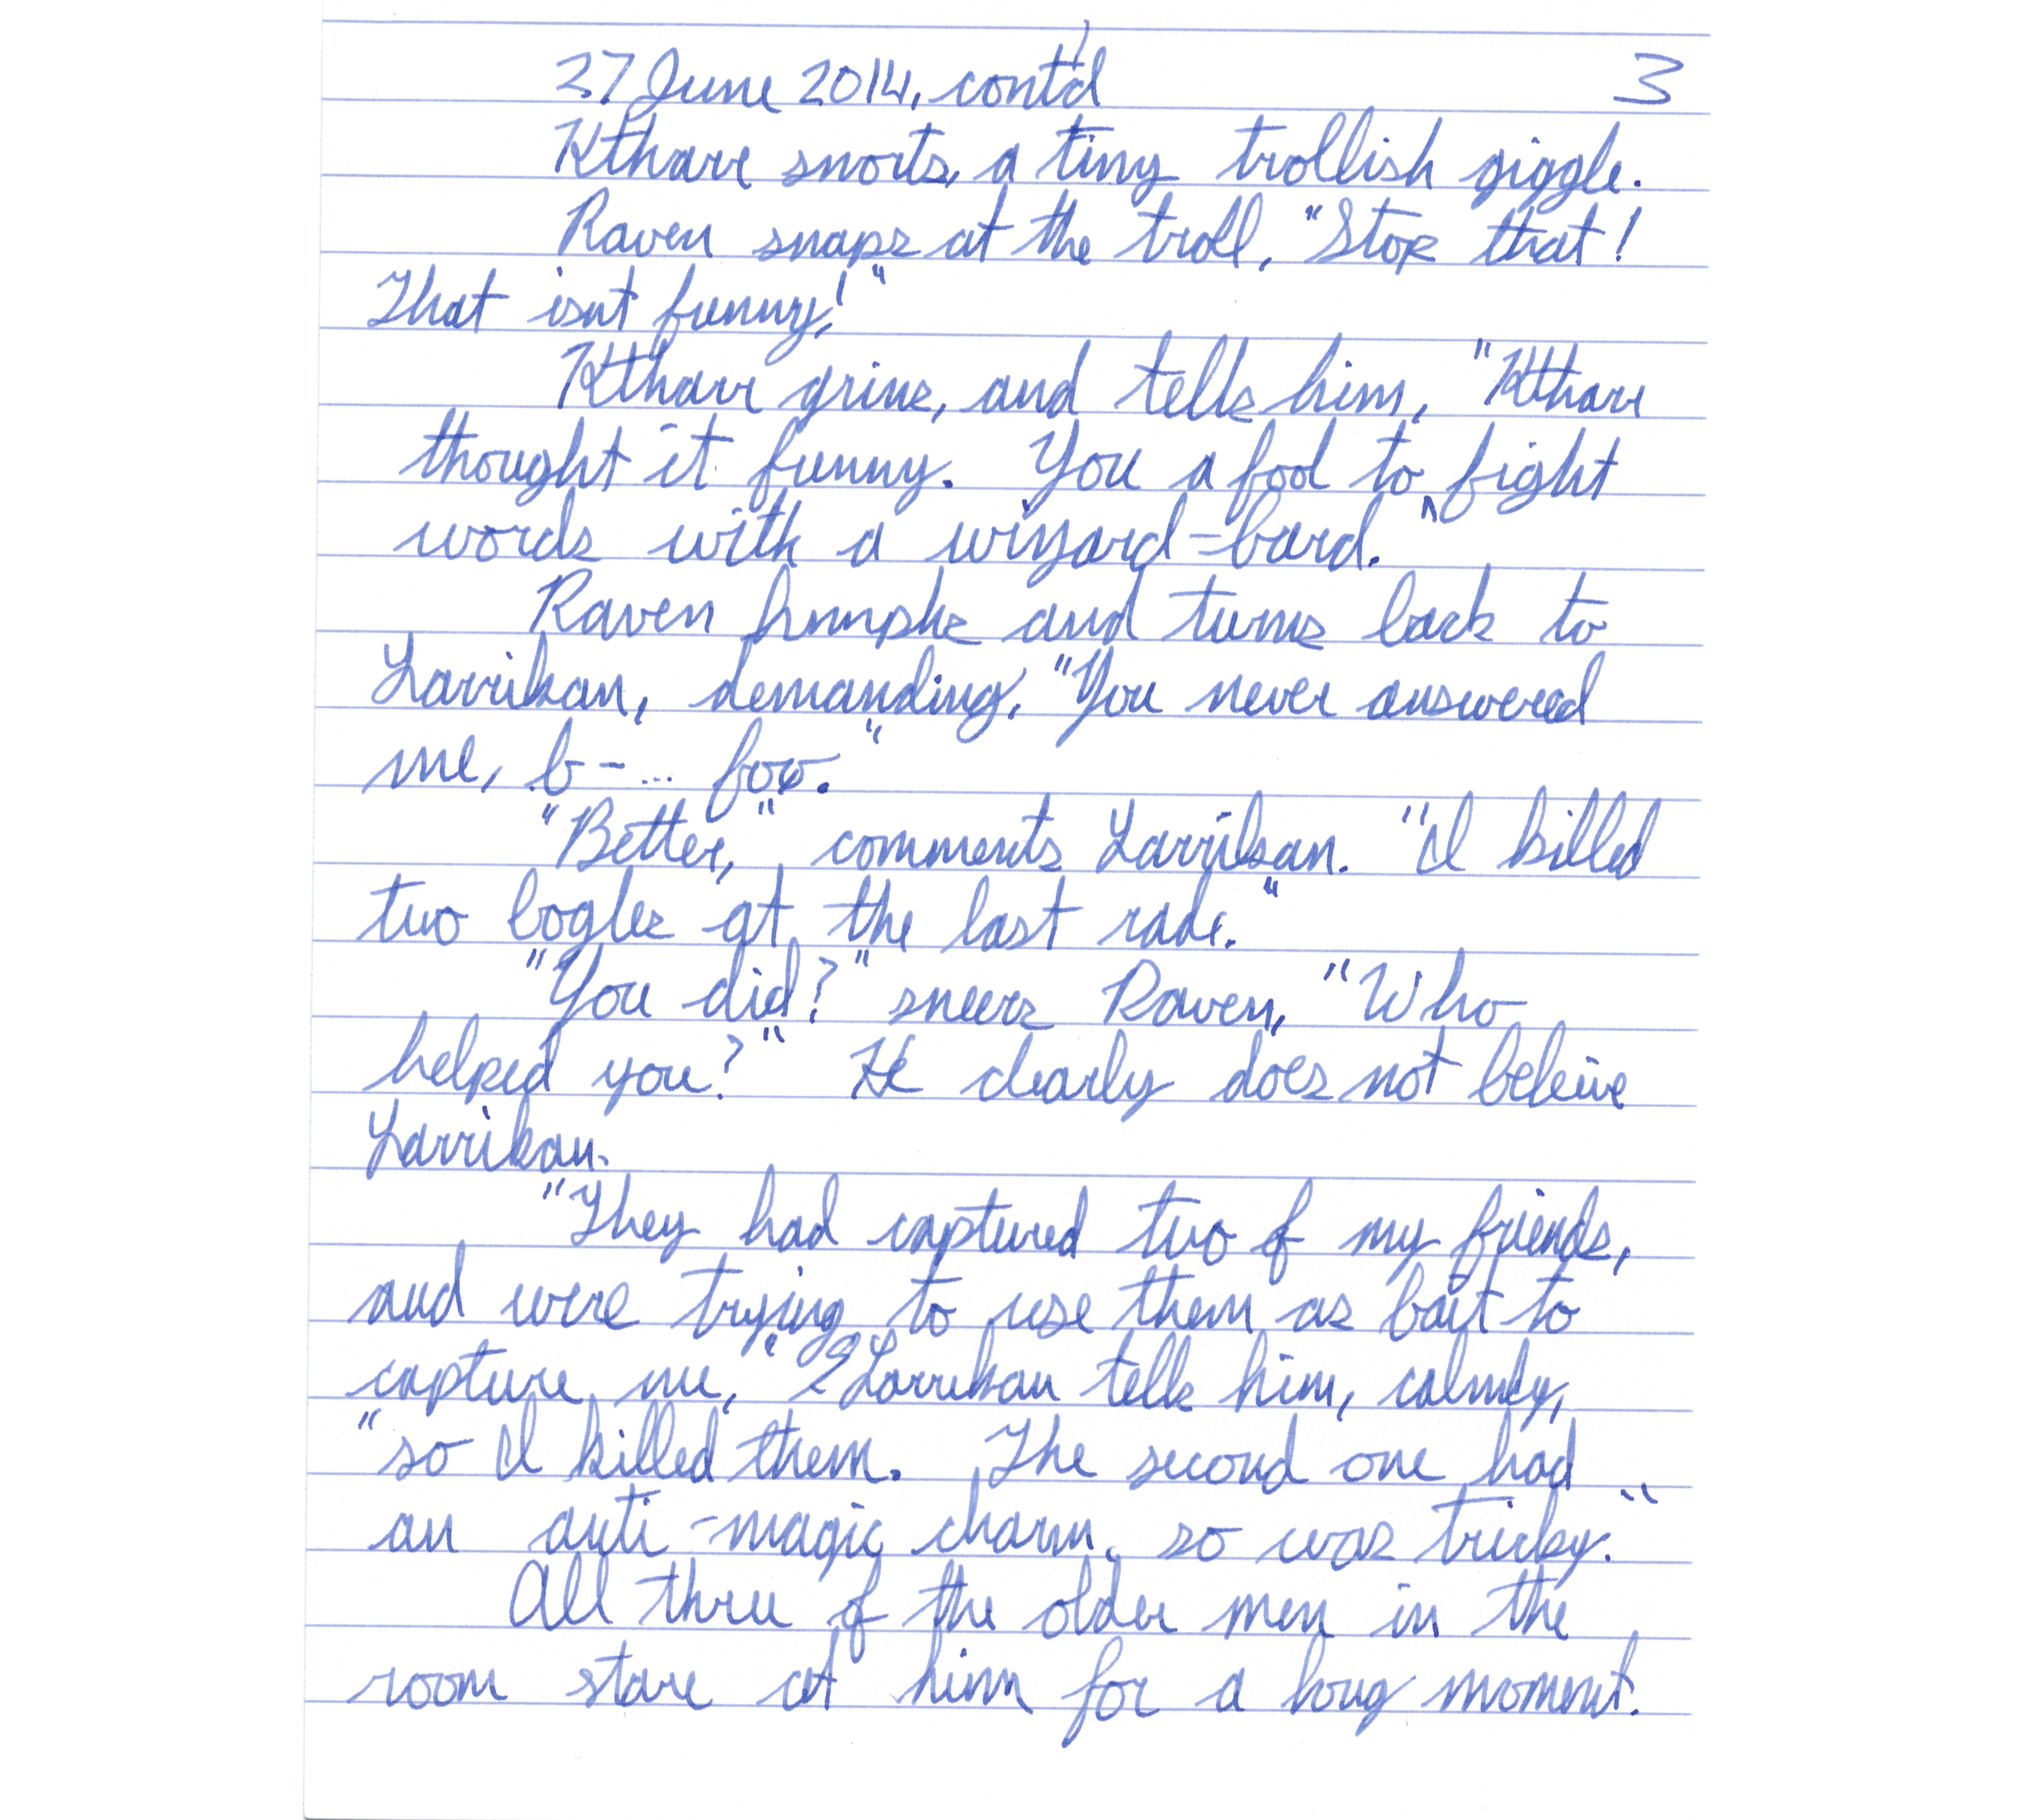 27 June 2014, cont'd 3
Ktharr snorts, a tiny trollish giggle.
Raven snaps at the troll, "Stop that!
That isnt funny!"
Ktharr grins, and tells him, "Ktharr
thought it funny. You a fool to ^ fight
words with a wizard-bard."
Raven humphs and turns back to
Larrikan, demanding, "You never answered
me, b-... fox."
"Better," comments Larrikan. "I killed
two bogles at the last rade."
"You did?" sneers Raven, "Who
helped you?" He clearly does not beleive
Larrikan.
"They had captured two of my friends,
and were trying to use them as bait to
capture me," Larrikan tells him, calmly,
"so I killed them. The second one had
an anti-magic charm, so was tricky."
All three of the older men in the
room stare at him for a long moment.